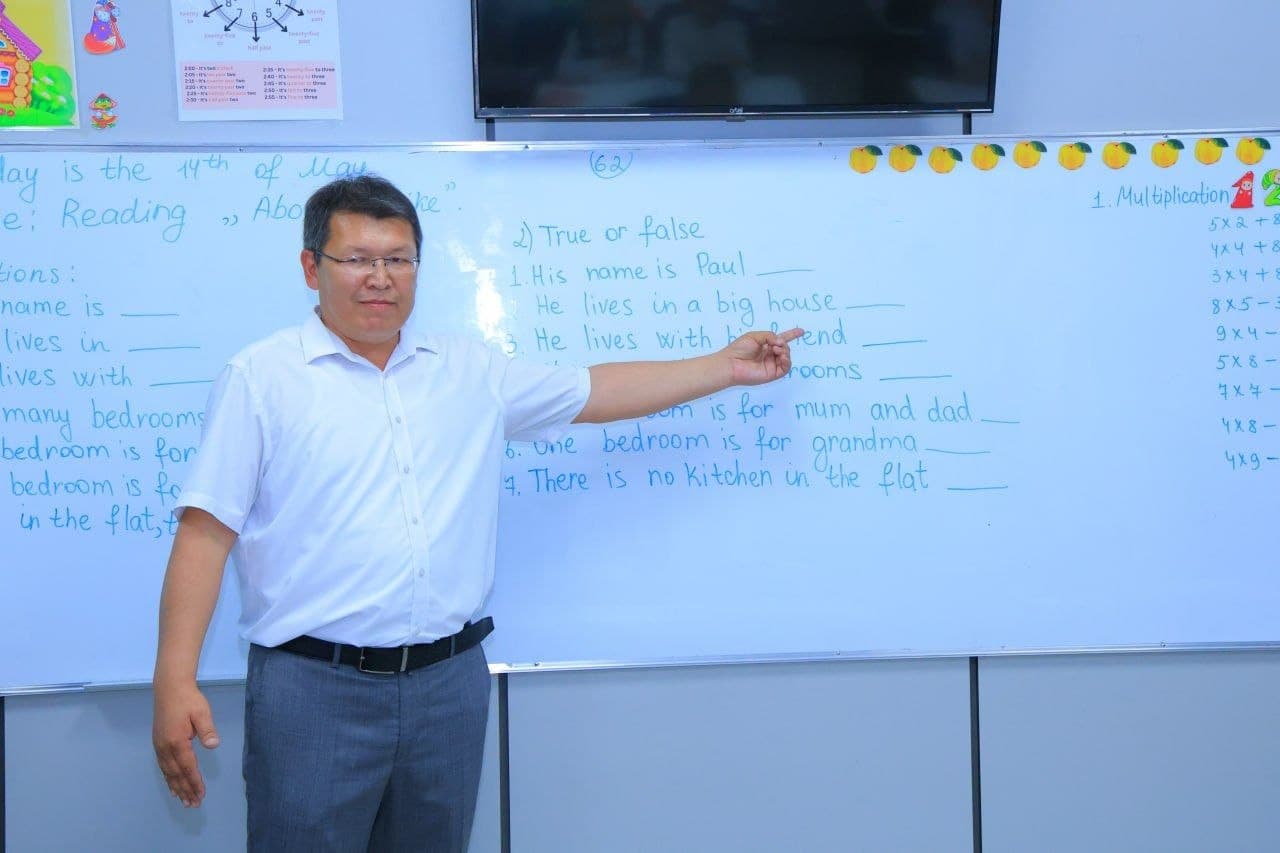 twenty-five to
half past
twenty-five past
twenty past
8 7 6 5 4
2:00 - It's two o'clock
2:05 - It's five past two
2:15 - It's quarter past two
2:20 - It's twenty past two
2:25 - It's twenty-five past two
2:30 - It's half past two
2:35 - It's twenty-five to three
2:40 - It's twenty to three
2:45 - It's quarter to three
2:50 - It's ten to three
2:55 - It's five to three
orbis
day is the 14th of May
e: Reading „ Abo ike".
tions:
name is ____
lives in ____
lives with ____
many bedrooms
bedroom is for
bedroom is fo
in the flat, t
62
2) True or false
1. His name is Paul ____
He lives in a big house ____
3. He lives with hi friend ____
rooms ____
oom is for mum and dad ____
6. One bedroom is for grandma ____
7. There is no kitchen in the flat ____
1. Multiplication
1 2
5x2 + 8
4x4 + 8
3x4 + 8
8x5 -
9x4 -
5x8 -
7x7 -
4x8 -
4x9 -